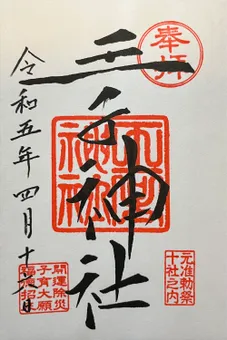 奉拝
王子神社
元准勅祭
十社之内
令和五年四月十
開運除災
子育大願